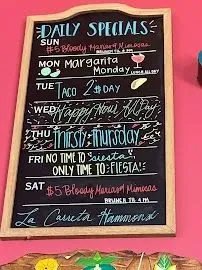 DAILY SPECIALS
SUN
$5 Bloody Marias & Mimosas
BRUNCH TIL 4 PM
MON Margarita
Monday
LUNCH ALL DAY
TUE Taco 2$ DAY
WED Happy Hour All Day
THU Thirsty Thursday
FRI NO TIME to "siesta",
ONLY TIME to FIESTA!
SAT
$5 Bloody Marias & Mimosas
BRUNCH TIL 4 PM
La Carreta Hammond